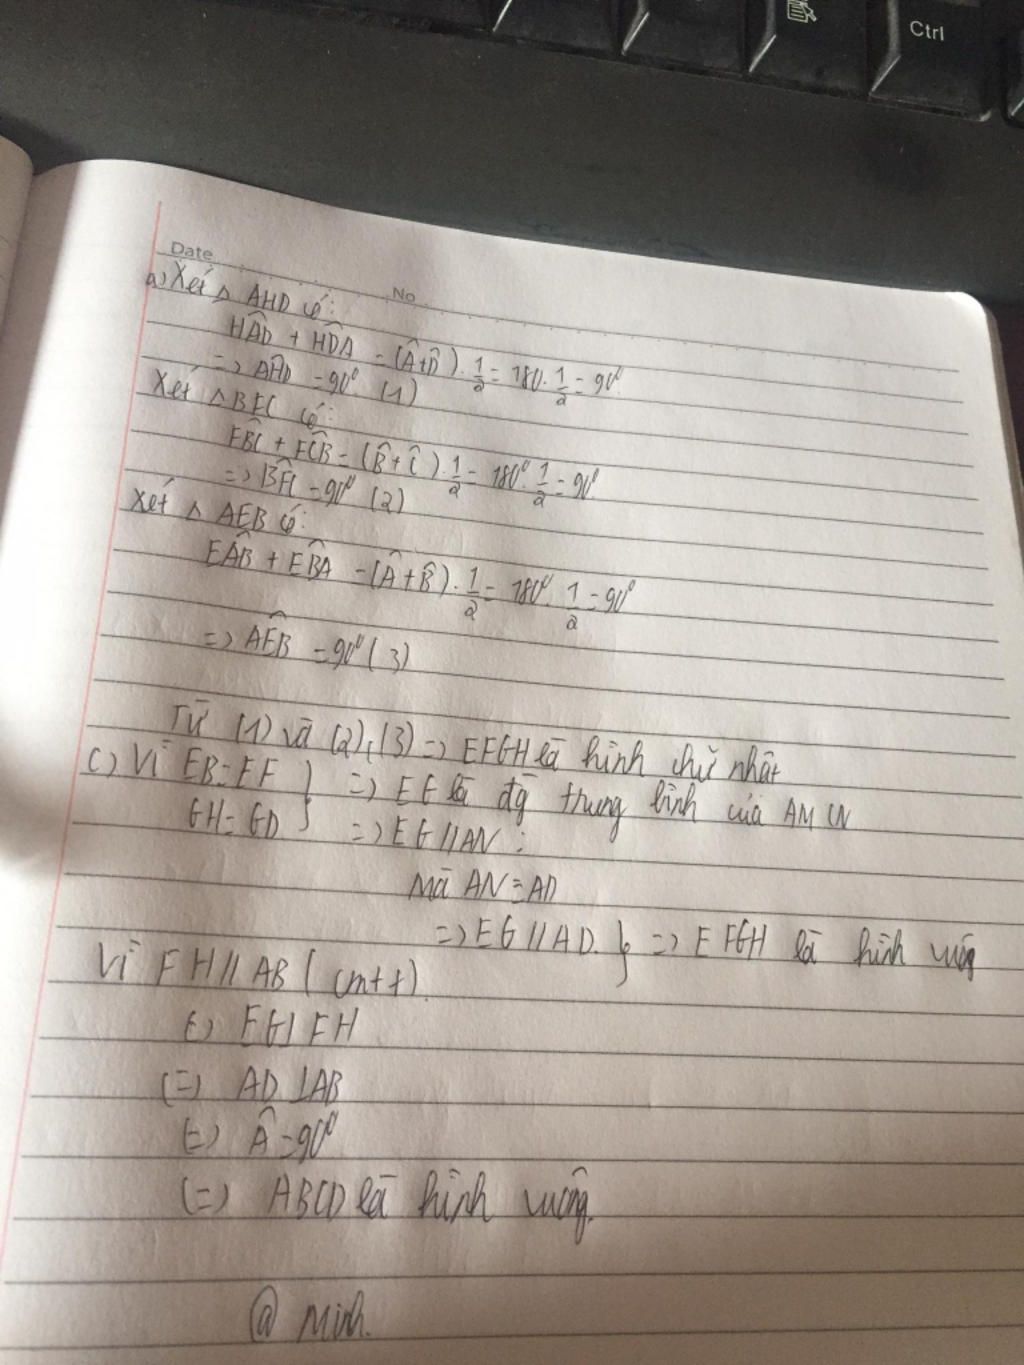 Ctrl
Date
No
a) Xét △ AHD có:
HÂD + HD̂A = (Â+D̂).1/2 = 180.1/2 = 90⁰
=> AĤD = 90⁰ (1)
Xét △ BFC có:
FB̂C + FĈB = (B̂+Ĉ).1/2 = 180⁰.1/2 = 90⁰
=> BF̂C = 90⁰ (2)
Xét △ AEB có:
EÂB + EB̂A = (Â+B̂).1/2 = 180⁰.1/2 = 90⁰
=> AÊB = 90⁰ (3)
Từ (1) và (2), (3) => EFGH là hình chữ nhật
c) Vì EB = EF } => EG là đg trung bình của AM CN
GH = GD } => EG // AN :
Mà AN = AD
=> EG // AD. } => EFGH là hình vuông
Vì FH // AB (cmtt).
(=) EG ⊥ FH
(=) AD ⊥ AB
(=) Â = 90⁰
(=) ABCD là hình vuông.
@ Minh.